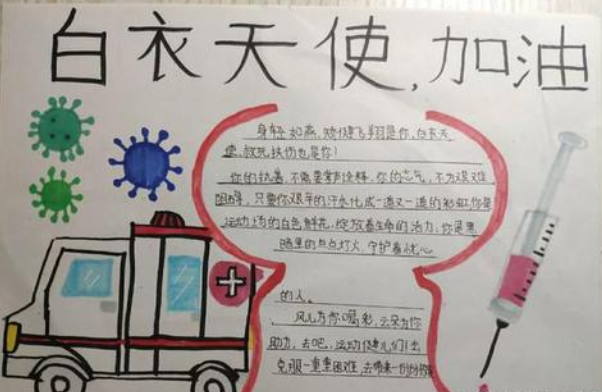 白衣天使,加油
身轻如燕,矫健飞翔是你,白衣天
使,救死扶伤也是你!
你的执着,不需要掌声诠释,你的志气,不为艰难
困阻,只要你艰辛的汗水化成一道又一道的彩虹,你是
运动场的白色鲜花,绽放着生命的活力,你是黑
暗里的点点灯火,守护着忧心
的人。
风儿为你喝彩,云朵为你
助力,去吧,运动健儿们!去
克服一重重困难,去带来一份份